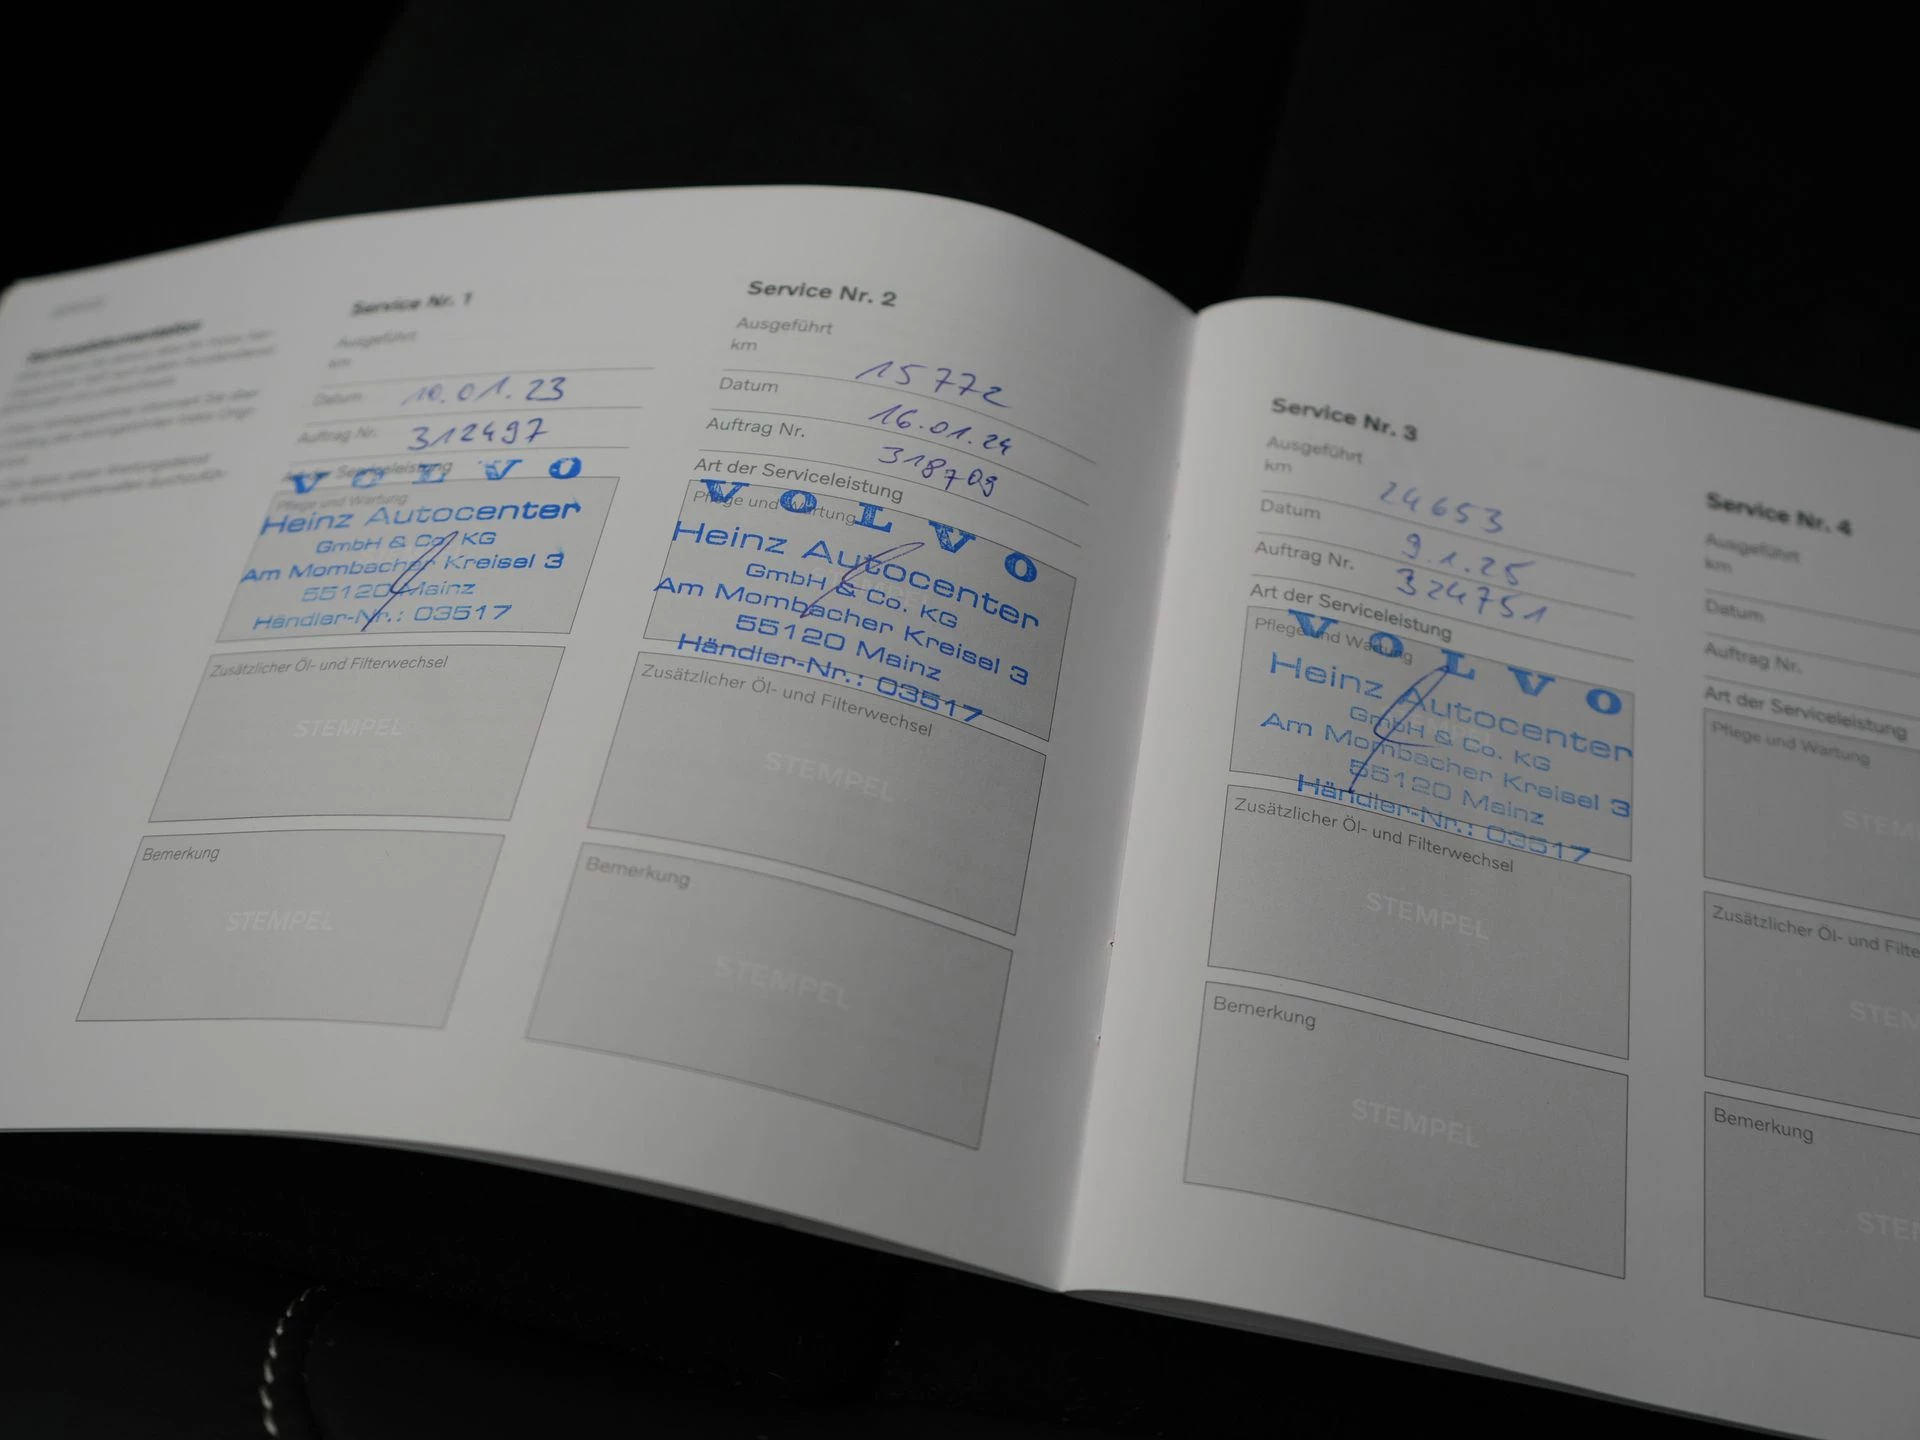 Service Nr. 1
Ausgeführt
km
Datum 10.01.23
Auftrag Nr. 312497
Art der Serviceleistung
Pflege und Wartung
VOLVO
Heinz Autocenter
GmbH & Co. KG
Am Mombacher Kreisel 3
55120 Mainz
Händler-Nr.: 03517
Zusätzlicher Öl- und Filterwechsel
STEMPEL
Bemerkung
STEMPEL
Service Nr. 2
Ausgeführt
km 15772
Datum 16.01.24
Auftrag Nr. 318709
Art der Serviceleistung
Pflege und Wartung
VOLVO
Heinz Autocenter
GmbH & Co. KG
Am Mombacher Kreisel 3
55120 Mainz
Händler-Nr.: 03517
Zusätzlicher Öl- und Filterwechsel
STEMPEL
Bemerkung
STEMPEL
Service Nr. 3
Ausgeführt
km 24653
Datum 9.1.25
Auftrag Nr. 324751
Art der Serviceleistung
Pflege und Wartung
VOLVO
Heinz Autocenter
GmbH & Co. KG
Am Mombacher Kreisel 3
55120 Mainz
Händler-Nr.: 03517
Zusätzlicher Öl- und Filterwechsel
STEMPEL
Bemerkung
STEMPEL
Service Nr. 4
Ausgeführt
km
Datum
Auftrag Nr.
Art der Serviceleistung
Pflege und Wartung
STEM
Zusätzlicher Öl- und Filte
STEM
Bemerkung
STE